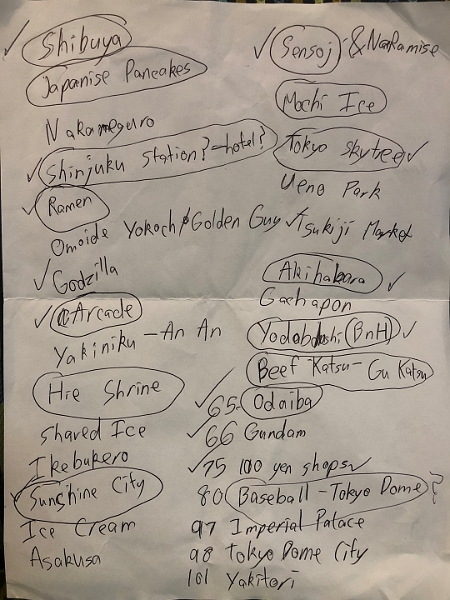 Shibuya
Japanise Pancakes
Nakameguro
Shinjuku Station? - hotel?
Ramen
Omoide Yokoch / Golden Guy
Godzilla
Arcade
Yakiniku - An An
Hie Shrine
Shaved Ice
Ikebukero
Sunshine City
Ice Cream
Asakusa
Sensoj & Nakamise
Mochi Ice
Tokyo Skytree
Ueno Park
Tsukiji Market
Akihabara
Gachapon
(BnH)
Beef Katsu - Gu Katsu
65 - Odaiba
66 Gundam
75 100 yen shops
80 Baseball - Tokyo Dome ?
97 Imperial Palace
98 Tokyo Dome City
101 Yakitori